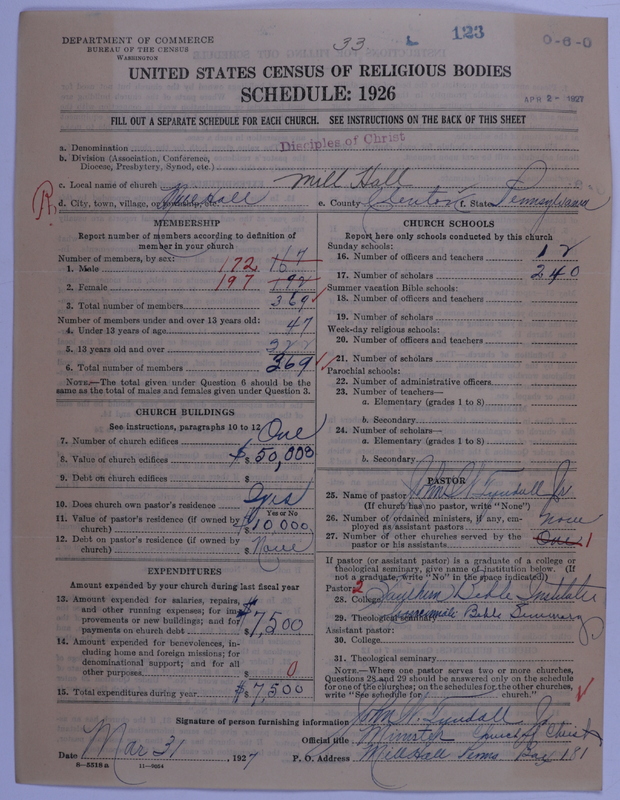 DEPARTMENT OF COMMERCE
BUREAU OF THE CENSUS
WASHINGTON
33 L 123 0-6-0
UNITED STATES CENSUS OF RELIGIOUS BODIES
SCHEDULE: 1926
APR 2- 1927
FILL OUT A SEPARATE SCHEDULE FOR EACH CHURCH. SEE INSTRUCTIONS ON THE BACK OF THIS SHEET
a. Denomination Disciples of Christ
b. Division (Association, Conference,
Diocese, Presbytery, Synod, etc.)
c. Local name of church Mill Hall
R. d. City, town, village, or township Mill Hall e. County Clinton f. State Pennsylvania
MEMBERSHIP
Report number of members according to definition of
member in your church
Number of members, by sex:
1. Male 172 167
2. Female 197 192
3. Total number of members 369
Number of members under and over 13 years old:
4. Under 13 years of age 47
5. 13 years old and over 322
6. Total number of members 369
NOTE.—The total given under Question 6 should be the
same as the total of males and females given under Question 3.
CHURCH BUILDINGS
See instructions, paragraphs 10 to 12
7. Number of church edifices One
8. Value of church edifices $ 50,000
9. Debt on church edifices $
10. Does church own pastor's residence? Yes
Yes or No
11. Value of pastor's residence (if owned by
church) $ 10,000
12. Debt on pastor's residence (if owned by
church) $ None
EXPENDITURES
Amount expended by your church during last fiscal year
13. Amount expended for salaries, repairs,
and other running expenses; for im-
provements or new buildings; and for
payments on church debt $ 7,500
14. Amount expended for benevolences, in-
cluding home and foreign missions; for
denominational support; and for all
other purposes $ 0
15. Total expenditures during year $ 7,500
CHURCH SCHOOLS
Report here only schools conducted by this church
Sunday schools:
16. Number of officers and teachers 12
17. Number of scholars 240
Summer vacation Bible schools:
18. Number of officers and teachers
19. Number of scholars
Week-day religious schools:
20. Number of officers and teachers
21. Number of scholars
Parochial schools:
22. Number of administrative officers
23. Number of teachers—
a. Elementary (grades 1 to 8)
b. Secondary
24. Number of scholars—
a. Elementary (grades 1 to 8)
b. Secondary
PASTOR
25. Name of pastor John W. Tyndall Jr
(If church has no pastor, write "None")
26. Number of ordained ministers, if any, em-
ployed as assistant pastors none
27. Number of other churches served by the
pastor or his assistants One 1
If pastor (or assistant pastor) is a graduate of a college or
theological seminary, give name of institution below. (If
not a graduate, write "No" in the space indicated)
Pastor: 2
28. College Bible Institute
29. Theological seminary Cincinnati Bible Seminary
Assistant pastor:
30. College
31. Theological seminary
NOTE.—Where one pastor serves two or more churches,
Questions 28 and 29 should be answered only on the schedule
for one of the churches; on the schedules for the other churches,
write "See schedule for church."
Signature of person furnishing information John W. Tyndall Jr
Official title Minister Church of Christ
Date Mar 31, 1927 P. O. Address Mill Hall Penna Box 181
8-5518 a 11-9064